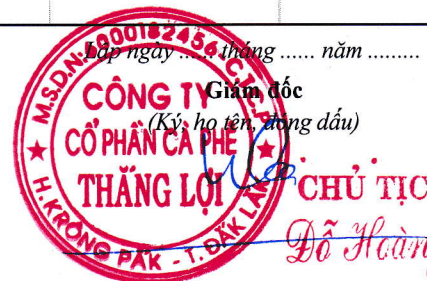 Lập ngày ...... tháng ...... năm .........
Giám đốc
(Ký, họ tên, đóng dấu)
M.S.D.N: 6000182456-C.T.C.P
CÔNG TY
CỔ PHẦN CÀ PHÊ
THẮNG LỢI
H. KRÔNG PẮK - T. ĐẮK LẮK
CHỦ TỊC
Đỗ Hoàn